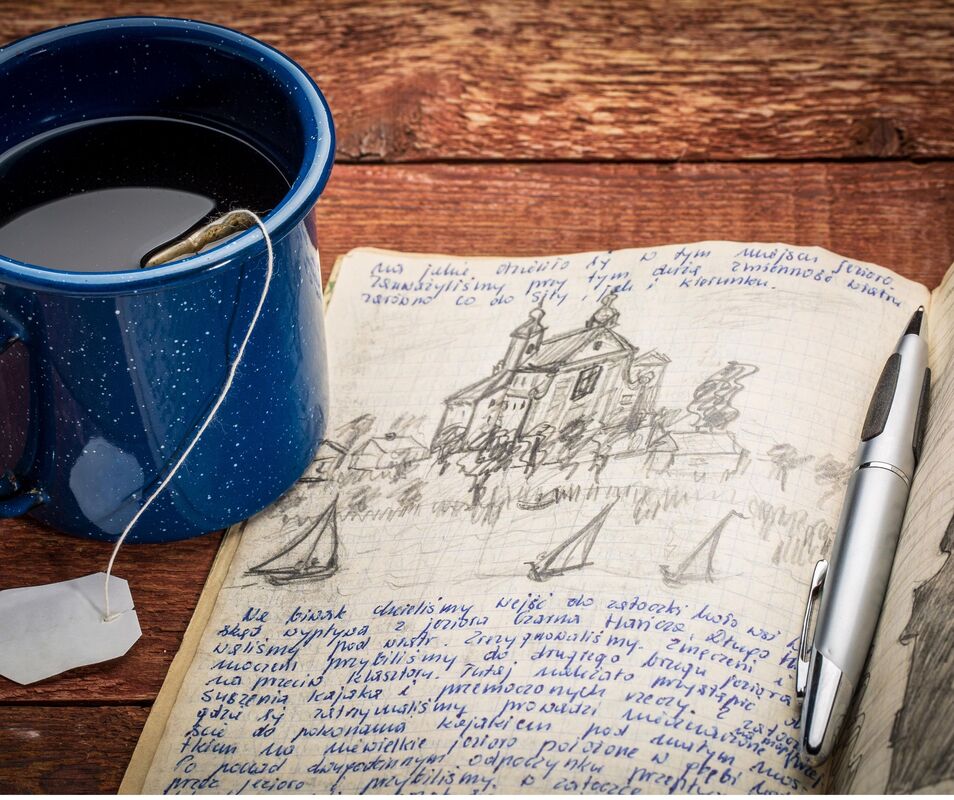 na jakie dzieliło się w tym miejscu jezioro.
Zauważyliśmy przy tym dużą zmienność wiatru
zarówno co do siły, jak i kierunku.
Na biwak chcieliśmy wejść do zatoczki koło wsi
skąd wypływa z jeziora Czarna Hańcza. Długo
waliśmy pod wiatr. Zrezygnowaliśmy. Zmęczeni i
moczeni przybiliśmy do drugiego brzegu jeziora
na przeciw klasztoru. Tutaj należało przystąpić do
suszenia kajaka i przemoczonych rzeczy. Z zatoczki
gdzie się zatrzymaliśmy prowadzi
ście do pokonania kajakiem pod niskim mos-
tkiem na niewielkie jezioro położone w głębi
Po ponad dwugodzinnym odpoczynku
przez jezioro i przybiliśmy w zatoczce